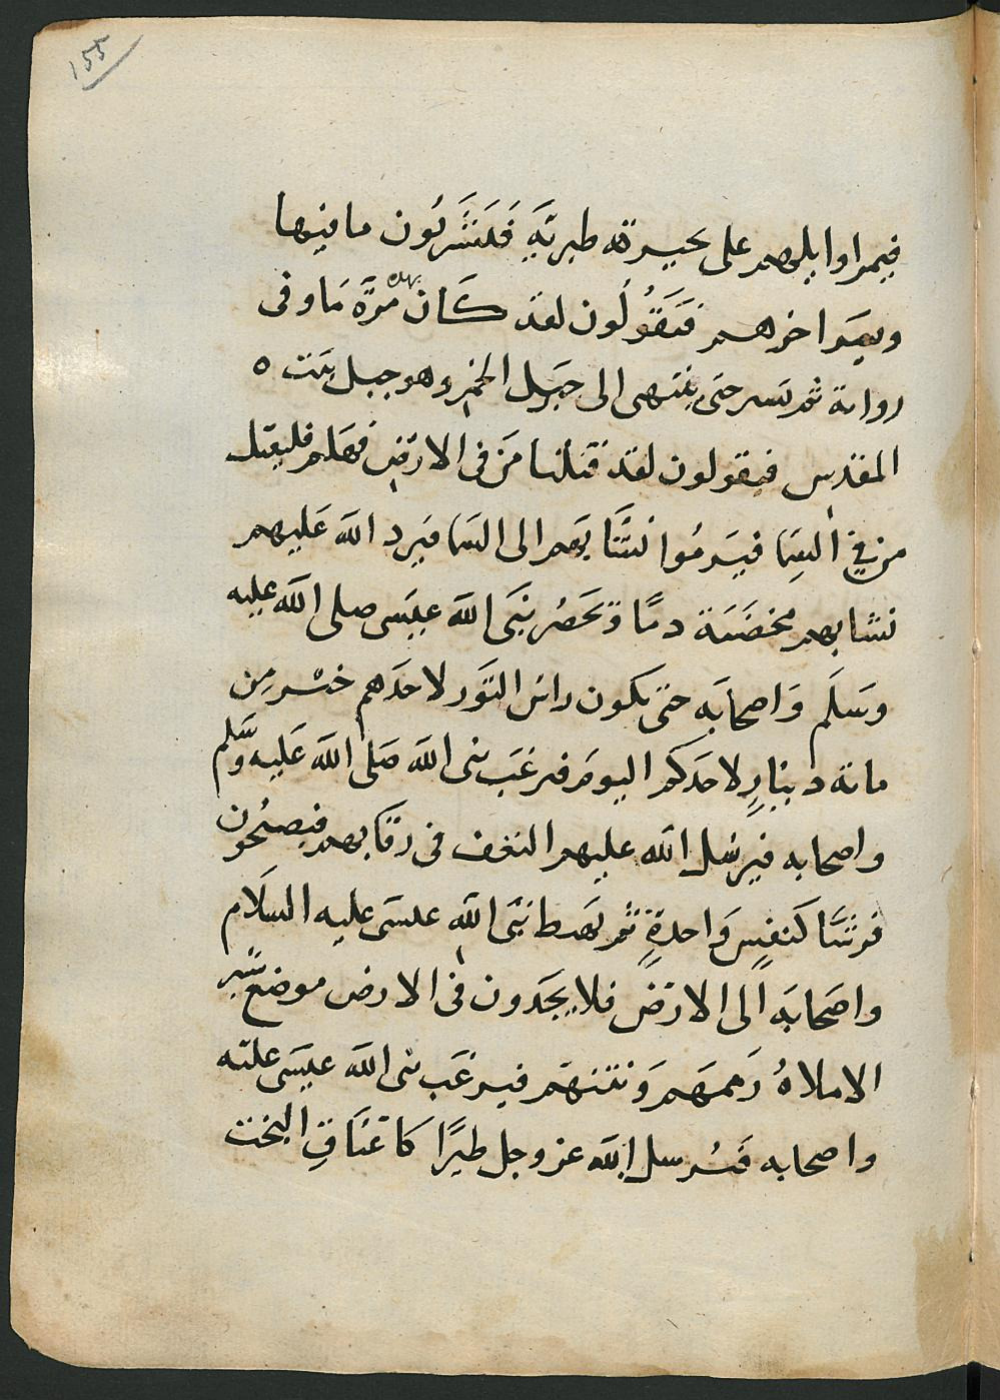 155
فيمراوايلهم على بحيرته طبريَّةِ فَلَتشَربُون ما فيها
ويمَر اخرهم فيَقُولُون لقد كَان بهذه مرَّة مَا وفى
رواية ثم يسير حتى ينتهى الى جبَل الخمر وهو جبل بيت
المقدس فيقولون لقد قتلنا مَن فى الارض فهَلم فليقتل
من في السمَا فيَرمُوا نشَّا بَهم الى السَما فيَرد اللَه عَليهم
نشابهم مخضَبَة دمًا وتحصَر نبَى اللَه عيسَى صلى اللَه عليه
وسَلَم وَاصحابَه حتى يكون راس الثَور لاحدَهم خير مِن
مائة دينارٍ لاحدكم اليومَ فيرغَب نبى اللَه صَلى اللَه عَليه وسَّلم
واصحابه فيرسُل اللَه عليهم النغف فى رقَابهم فيصبُحون
فرسَّا كَنفسٍ وَاحدةٍ ثم يهَبط نبَى اللَه عيسَى عليه السَلَام
واصَحابَه الى الارَضَ فلا يجَدون فى الارض موضع شبرٍ
الا ملاهُ زهمَهم وَنتنهَم فيرغَب نبى اللَه عيسَى عليَه
واصحابه فيُرسل اللَه عز وجل طيرًا كاعَنَاقِ البخت